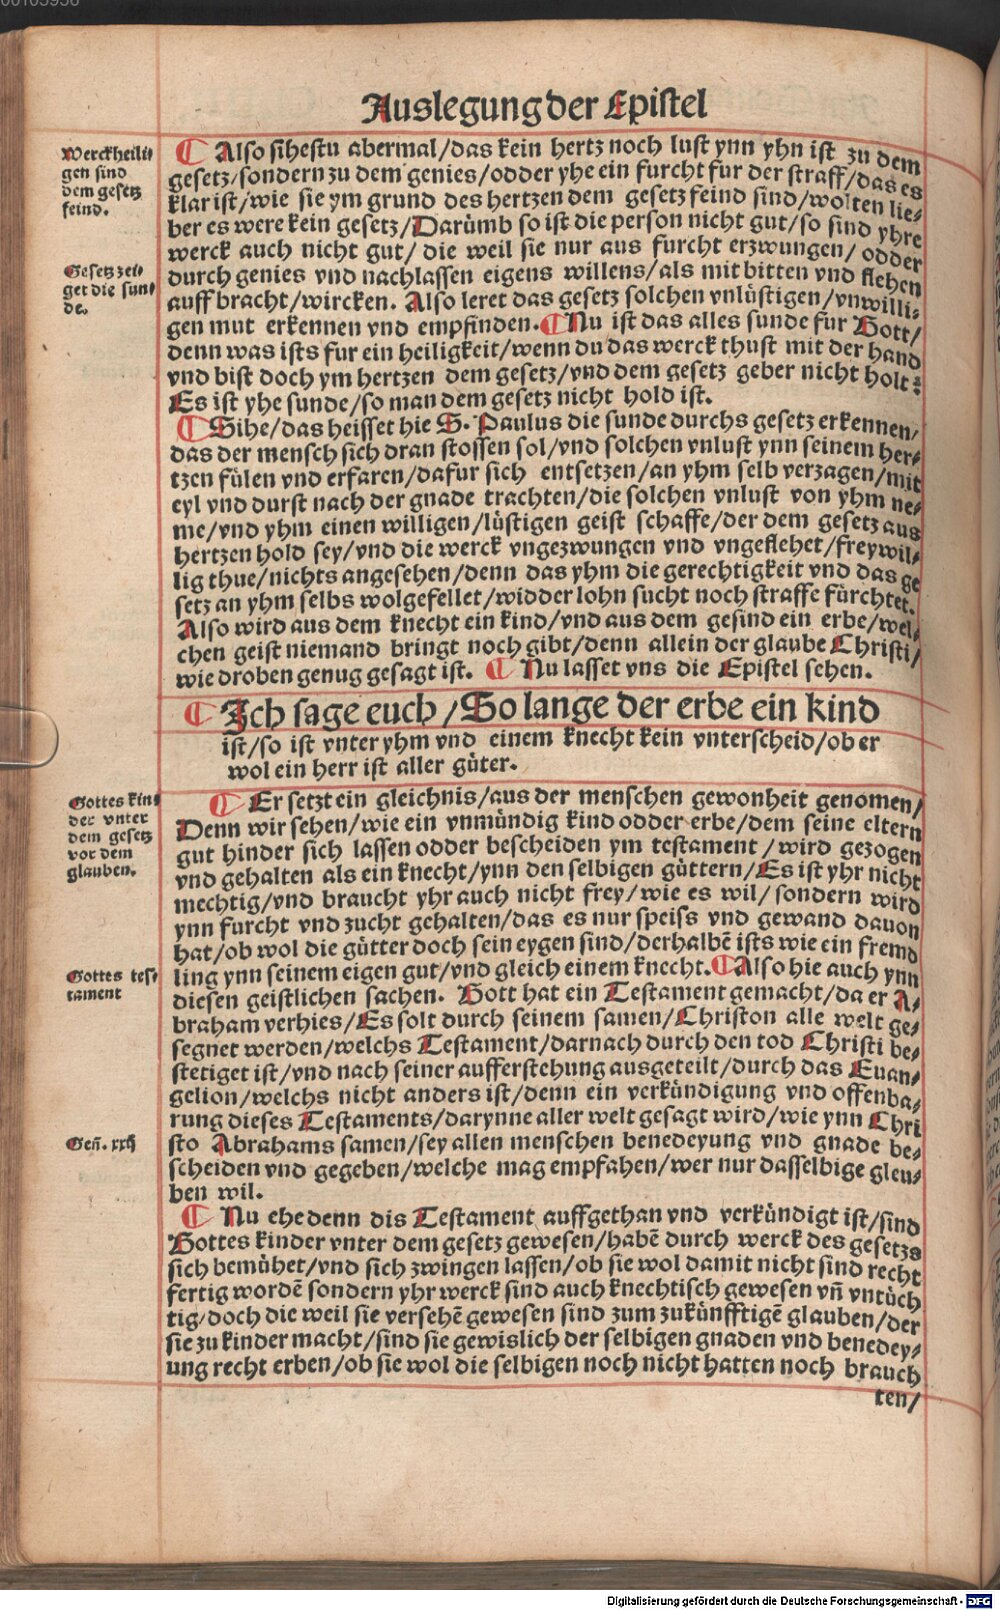 00105956
Auslegung der Epistel
Werckheili⸗
gen sind
dem gesetz
feind.
Gesetz zei⸗
get die sun⸗
de.
Also sihestu abermal/das kein hertz noch lust ynn yhn ist zu dem
gesetz/sondern zu dem genies/odder yhe ein furcht fur der straff/das es
klar ist/wie sie ym grund des hertzen dem gesetz feind sind/wolten lie⸗
ber es were kein gesetz/Darůmb so ist die person nicht gut/so sind yhre
werck auch nicht gut/ die weil sie nur aus furcht erzwungen/ odder
durch genies vnd nachlassen eigens willens/als mit bitten vnd flehen
auff bracht/wircken. Also leret das gesetz solchen vnlůstigen/vnwilli⸗
gen mut erkennen vnd empfinden. Nu ist das alles sunde fur Gott/
denn was ists fur ein heiligkeit/wenn du das werck thust mit der hand
vnd bist doch ym hertzen dem gesetz/vnd dem gesetz geber nicht holt?
Es ist yhe sunde/so man dem gesetz nicht hold ist.
Sihe/das heisset hie S. Paulus die sunde durchs gesetz erkennen/
das der mensch sich dran stossen sol/vnd solchen vnlust ynn seinem her⸗
tzen fůlen vnd erfaren/dafur sich entsetzen/an yhm selb verzagen/mit
eyl vnd durst nach der gnade trachten/die solchen vnlust von yhm ne⸗
me/vnd yhm einen willigen/lůstigen geist schaffe/der dem gesetz aus
hertzen hold sey/vnd die werck vngezwungen vnd vngeflehet/freywil⸗
lig thue/nichts angesehen/denn das yhm die gerechtigkeit vnd das ge
setz an yhm selbs wolgefellet/widder lohn sucht noch straffe fůrchtet.
Also wird aus dem knecht ein kind/vnd aus dem gesind ein erbe/wel⸗
chen geist niemand bringt noch gibt/denn allein der glaube Christi/
wie droben genug gesagt ist. Nu lasset vns die Epistel sehen.
Ich sage euch/So lange der erbe ein kind
ist/so ist vnter yhm vnd einem knecht kein vnterscheid/ob er
wol ein herr ist aller gůter.
Gottes kin⸗
der vnter
dem gesetz
vor dem
glauben.
Gottes tes⸗
tament
Geñ. xxij
Er setzt ein gleichnis/aus der menschen gewonheit genomen/
Denn wir sehen/wie ein vnmůndig kind odder erbe/dem seine eltern
gut hinder sich lassen odder bescheiden ym testament/wird gezogen
vnd gehalten als ein knecht/ynn den selbigen gůttern/Es ist yhr nicht
mechtig/vnd braucht yhr auch nicht frey/wie es wil/sondern wird
ynn furcht vnd zucht gehalten/das es nur speiss vnd gewand dauon
hat/ob wol die gůtter doch sein eygen sind/derhalbē ists wie ein fremd
ling ynn seinem eigen gut/vnd gleich einem knecht. Also hie auch ynn
diesen geistlichen sachen. Gott hat ein Testament gemacht/da er A⸗
braham verhies/Es solt durch seinem samen/Christon alle welt ge⸗
segnet werden/welchs Testament/darnach durch den tod Christi be⸗
stetiget ist/vnd nach seiner aufferstehung ausgeteilt/durch das Euan⸗
gelion/welchs nicht anders ist/denn ein verkůndigung vnd offenba⸗
rung dieses Testaments/darynne aller welt gesagt wird/wie ynn Chri
sto Abrahams samen/sey allen menschen benedeyung vnd gnade be⸗
scheiden vnd gegeben/welche mag empfahen/wer nur dasselbige gleu⸗
ben wil.
Nu ehe denn dis Testament auffgethan vnd verkůndigt ist/sind
Gottes kinder vnter dem gesetz gewesen/habē durch werck des gesetzs
sich bemůhet/vnd sich zwingen lassen/ob sie wol damit nicht sind recht
fertig wordē sondern yhr werck sind auch knechtisch gewesen vñ vntůch
tig/doch die weil sie versehē gewesen sind zum zukůnfftigē glauben/der
sie zu kinder macht/sind sie gewislich der selbigen gnaden vnd benedey⸗
ung recht erben/ob sie wol die selbigen noch nicht hatten noch brauch
ten/
Digitalisierung gefördert durch die Deutsche Forschungsgemeinschaft - DFG